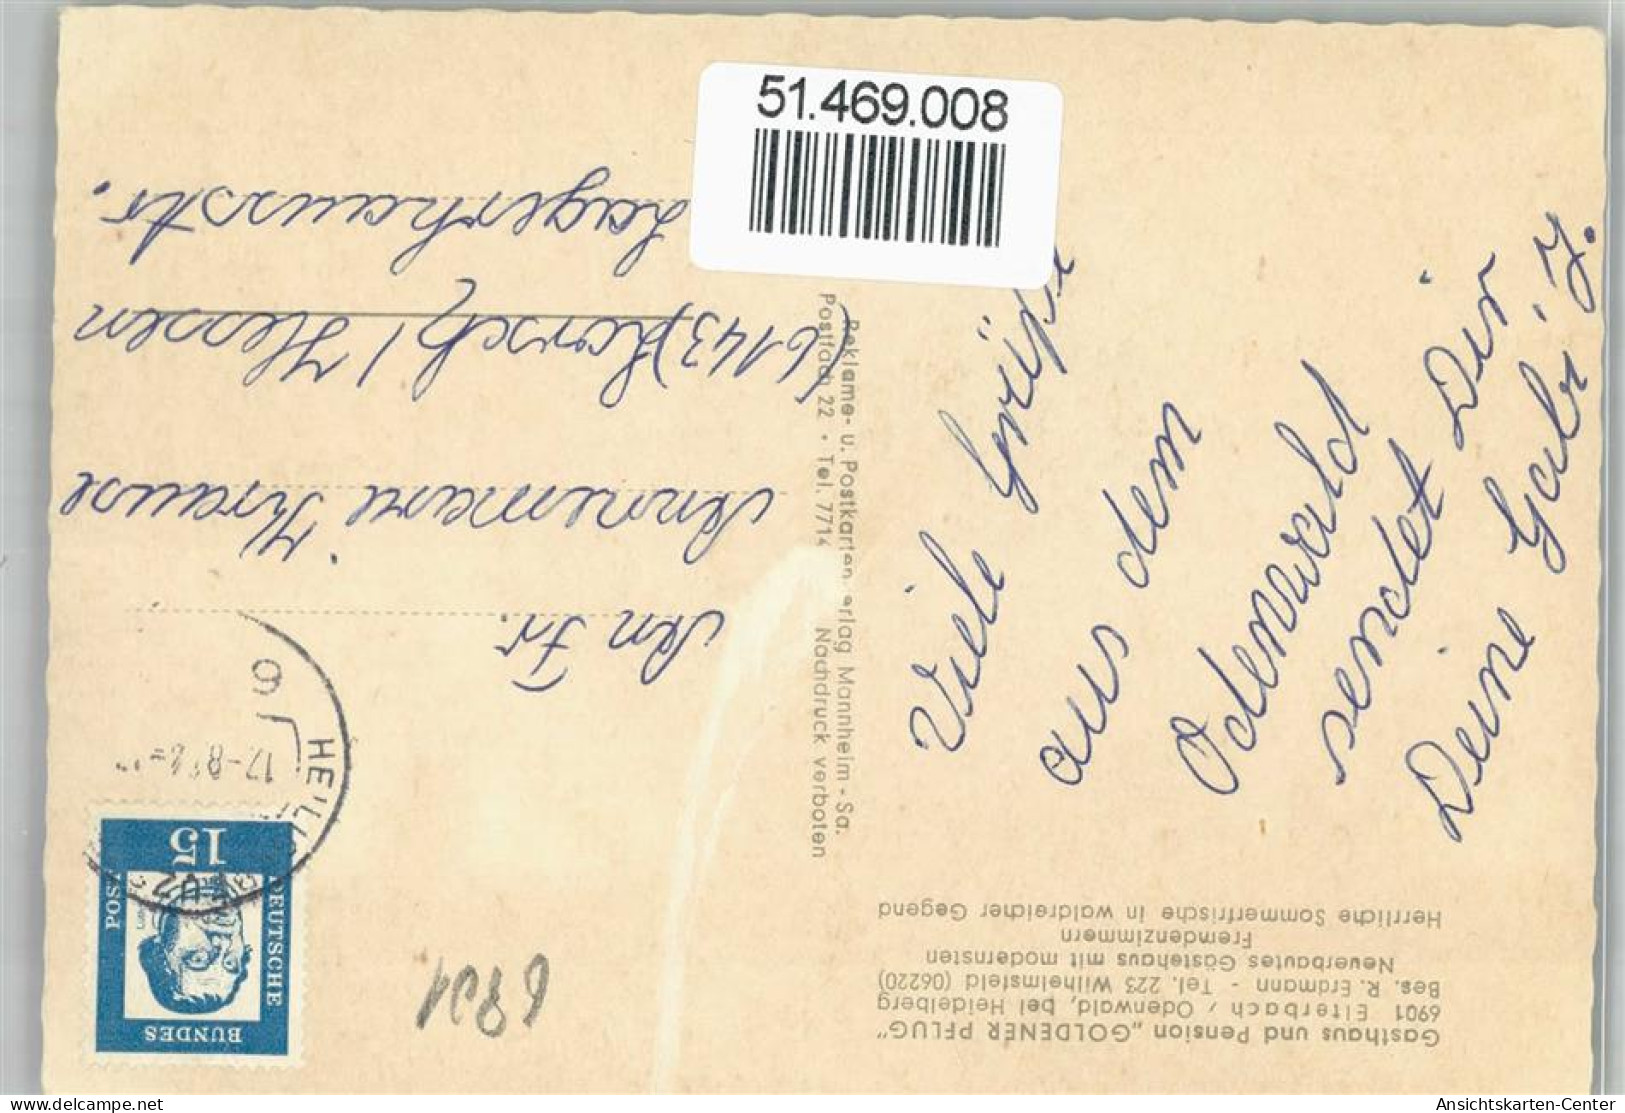 51.469.008
Gasthaus und Pension „GOLDENER PFLUG"
6901 Eiterbach / Odenwald, bei Heidelberg
Bes. R. Erdmann - Tel. 223 Wilhelmsfeld (06220)
Neuerbautes Gästehaus mit modernsten
Fremdenzimmern
Herrliche Sommerfrische in waldreicher Gegend
Viele Grüße
aus dem
Odenwald
sendet Dir
Deine Gabi J.
Reklame- u. Postkarten erlag Mannheim - Sa.
Postfach 22 · Tel. 7714 Nachdruck verboten
6901
DEUTSCHE
BUNDES
POST
15
An Fr.
Annemarie Krause
(6143) Lorsch / Hessen
Lagerhausstr.
Ansichtskarten-Center
delcampe.net